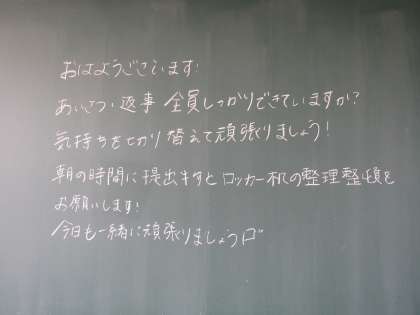 おはようございます!
あいさつ・返事 全員しっかりできていますか?
気持ちをせかり替えて頑張りましょう!
朝の時間に提出キすとロッカー机の整理整頓を
お願いします!
今日も一緒に頑張りましょう